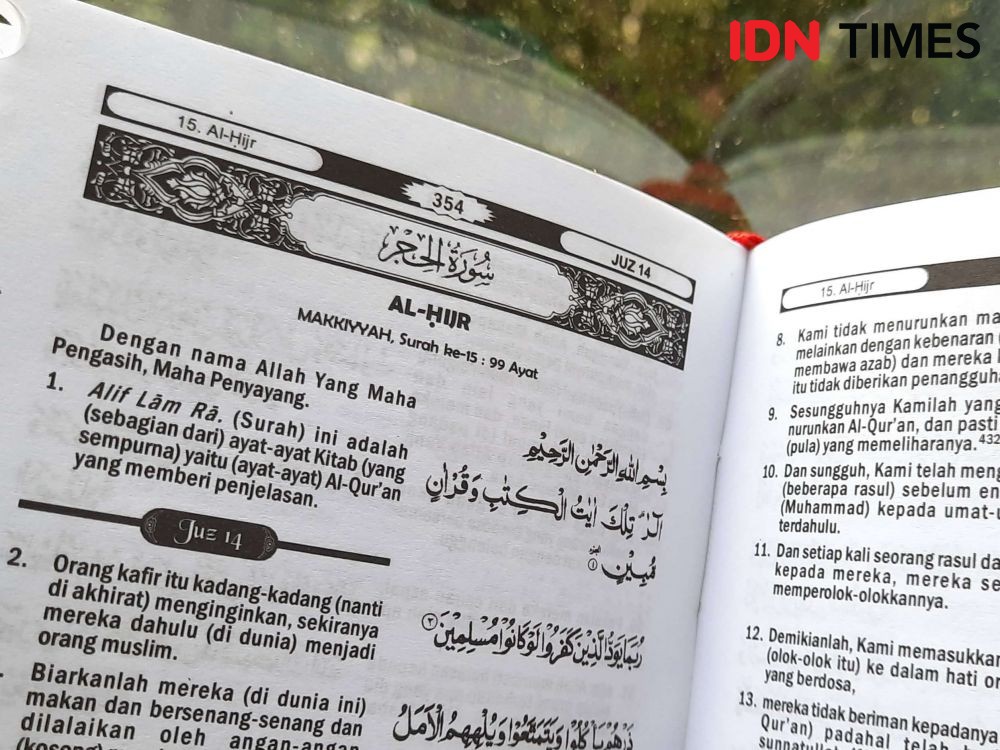 IDN TIMES
15. Al-Ḥijr
354
JUZ 14
سُوْرَةُ الْحِجْرِ
AL-ḤIJR
MAKKIYYAH, Surah ke-15 : 99 Ayat
Dengan nama Allah Yang Maha
Pengasih, Maha Penyayang.
بِسْمِ اللّٰهِ الرَّحْمٰنِ الرَّحِيْمِ
1. Alif Lām Rā. (Surah) ini adalah
(sebagian dari) ayat-ayat Kitab (yang
sempurna) yaitu (ayat-ayat) Al-Qur'an
yang memberi penjelasan.
الۤرٰ ۗ تِلْكَ اٰيٰتُ الْكِتٰبِ وَقُرْاٰنٍ
مُّبِيْنٍ ۞ ١
Juz 14
2. Orang kafir itu kadang-kadang (nanti
di akhirat) menginginkan, sekiranya
mereka dahulu (di dunia) menjadi
orang muslim.
رُبَمَا يَوَدُّ الَّذِيْنَ كَفَرُوْا لَوْ كَانُوْا مُسْلِمِيْنَ ٢
Biarkanlah mereka (di dunia ini)
makan dan bersenang-senang dan
dilalaikan oleh angan-angan
(kosong)
ذَرْهُمْ يَأْكُلُوْا وَيَتَمَتَّعُوْا وَيُلْهِهِمُ الْاَمَلُ
15. Al-Ḥijr
8. Kami tidak menurunkan
melainkan dengan kebenaran
membawa azab) dan mereka
itu tidak diberikan
9. Sesungguhnya Kamilah yang
nurunkan Al-Qur'an, dan pasti
(pula) yang memeliharanya.432
10. Dan sungguh, Kami telah
(beberapa rasul) sebelum
(Muhammad) kepada
terdahulu.
11. Dan setiap kali seorang rasul
kepada mereka, mereka
memperolok-olokkannya.
12. Demikianlah, Kami memasukkan
(olok-olok itu) ke dalam hati
yang berdosa,
13. mereka tidak beriman kepadanya
Qur'an) padahal